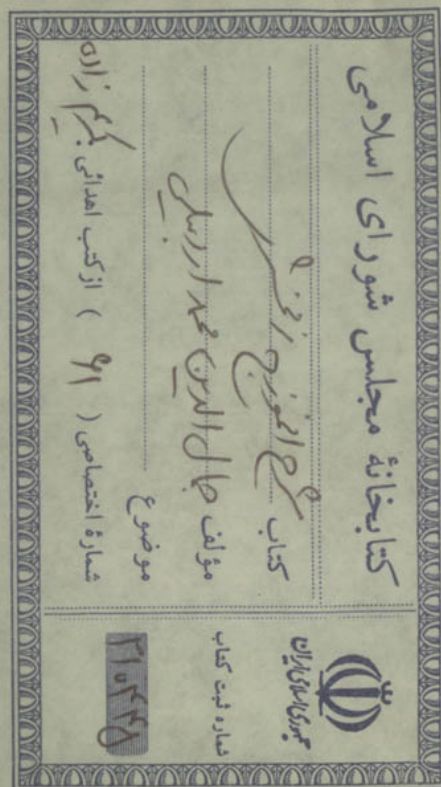 کتابخانهٔ مجلس شورای اسلامی
کتاب شرح انموذج زمخشری
مؤلف جمال الدین محمد اردبیلی
موضوع
شمارهٔ اختصاصی ( ۶۱ ) از کتب اهدائی: کریم زاده
جمهوری اسلامی ایران
شماره ثبت کتاب